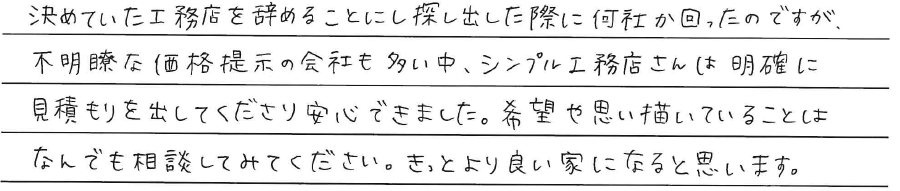 決めていた工務店を辞めることにし探し出した際に何社か回ったのですが、
不明瞭な価格提示の会社も多い中、シンプル工務店さんは明確に
見積もりを出してくださり安心できました。希望や思い描いていることは
なんでも相談してみてください。きっとより良い家になると思います。